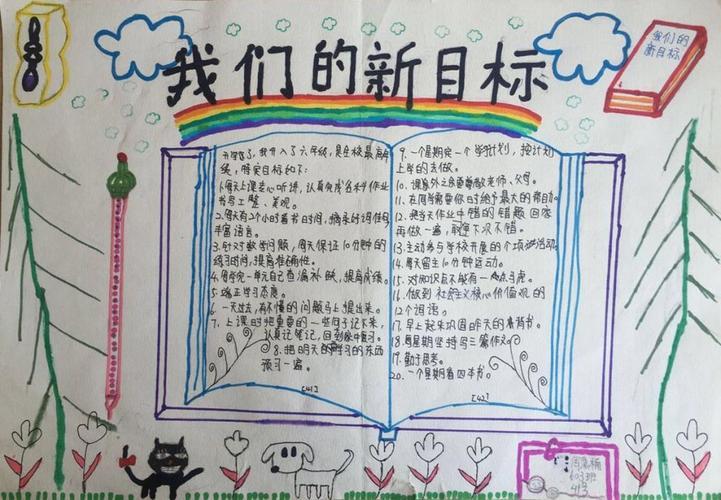 我们的新目标
我们的
新目标
开学了,我升入了六年级,是在校最高年
级,特定目标如下:
1.每天上课专心听讲,认真完成各科作业
书写工整、美观。
2.每天有2个小时看书时间,摘录好词佳句
丰富语言。
3.针对数学问题,每天保证10分钟的
练习时间,提高准确性。
4.每学完一单元自己查漏补缺,提高成绩。
5.端正学习态度。
6.一天过去,有不懂的问题马上提出来。
7.上课时把重要的一些句子记下来,
认真记笔记,回到家中复习。
8.把明天的要学习的东西
预习一遍。
[41]
9.一个星期定一个学习计划,按计划
上学的去做。
10.课堂外之余要尊敬老师、父母。
11.在同学需要你时给予最大的帮助。
12.把当天作业中错的错题回家
再做一遍,争取下次不错。
13.主动参与学校开展的各项活动。
14.每天留生10分钟运动。
15.对知识点不能有一点马虎。
16.做到社会主义核心价值观的
12个词语。
17.早上起来巩固昨天的要背书。
18.每星期坚持写三篇作文。
19.勤于思考。
20.一个星期看四本书。
[42]
603班
41号